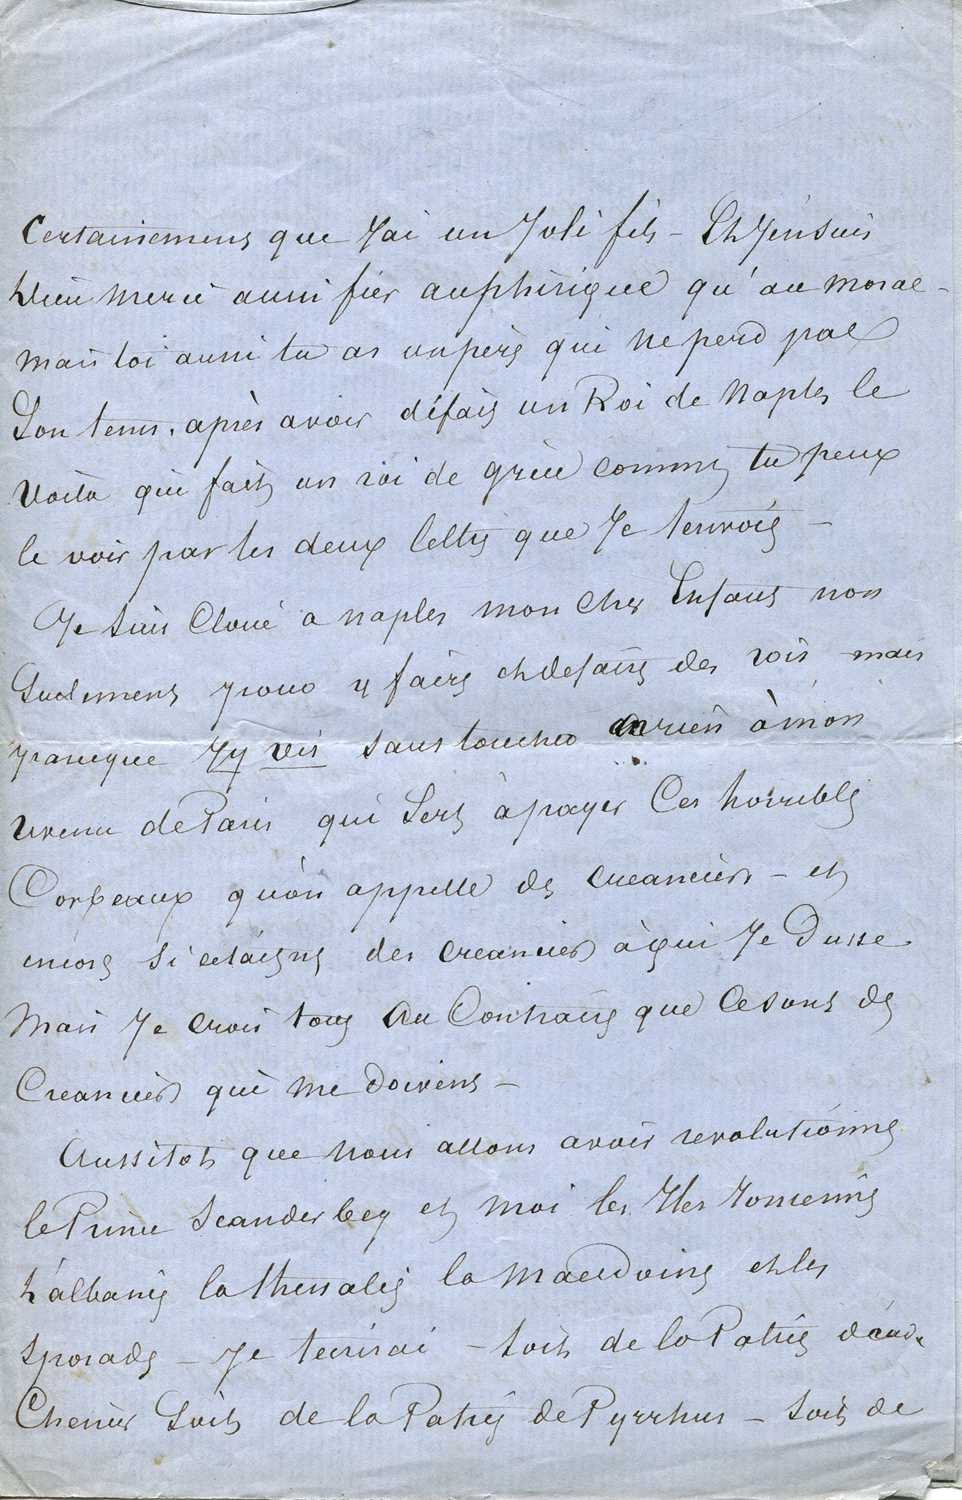 Certainement que j'ai un joli fils – Et j'en suis
Dieu merci aussi fier au phisique qu'au moral –
mais toi aussi tu as un père qui ne perd pas
son tems. après avoir défait un Roi de Naples le
voila qui fait un roi de grèce comme tu peux
le voir par les deux lettres que je t'envoie –
Je suis cloué a naples mon cher Enfant non
seulement pour y faire et defaire des rois mais
parceque j'y vis sans toucher a rien à mon
revenu de Paris qui sert à payer ces horribles
Corbeaux qu'on appelle des creanciers – et
encore si c'etaient des creanciers à qui je Dusse
Mais je crois tout au Contraire que ce sont des
Creanciers qui me doivent –
Aussitot que nous allons avoir revolutionné
le Prince Scanderbeg et moi les Iles Ioniennes
L'albanie la thessalie la Macedoine et les
sporades – je t'ecrirai – soit de la Patrie d'andre
Chenier soit de la Patrie de Pyrrhus – soit de